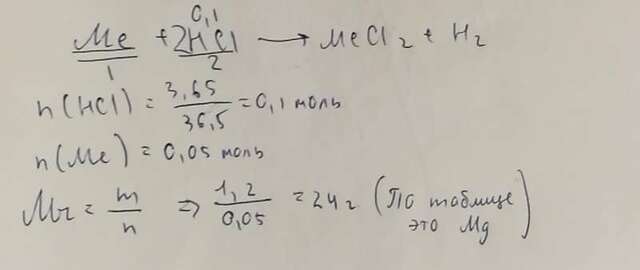 0,1
Me + 2HCl → MeCl2 + H2
1 2
n(HCl) = 3,65/36,5 = 0,1 моль
n(Me) = 0,05 моль
Mr = m/n ⇒ 1,2/0,05 = 24 г (По таблице это Mg)